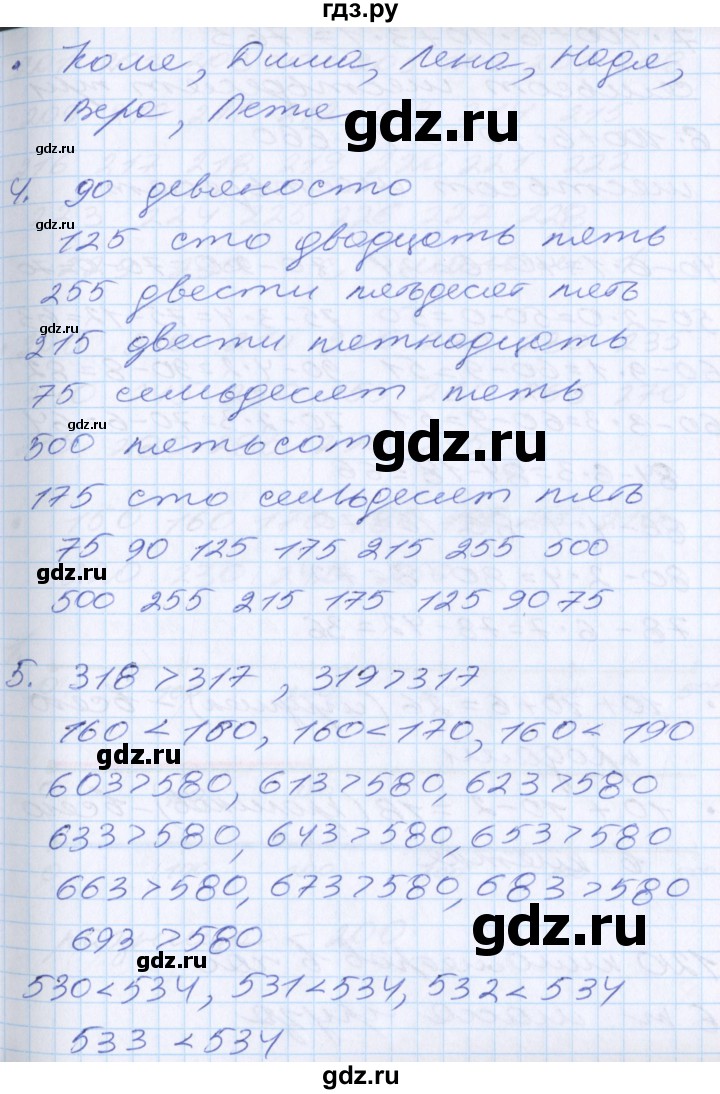 гдз.ру
• Коля, Дима, Лена, Надя,
Вера, Петя
gdz.ru
gdz.ru
4. 90 девяносто
gdz.ru
125 сто двадцать пять
255 двести пятьдесят пять
gdz.ru
215 двести пятнадцать
75 семьдесят пять
gdz.ru
500 пятьсот
gdz.ru
175 сто семьдесят пять
75 90 125 175 215 255 500
gdz.ru
500 255 215 175 125 90 75
5. 318 > 317 , 319 > 317
160 < 180, 160 < 170, 160 < 190
gdz.ru
603 > 580, 613 > 580, 623 > 580
633 > 580, 643 > 580, 653 > 580
663 > 580, 673 > 580, 683 > 580
gdz.ru
693 > 580
gdz.ru
530 < 534, 531 < 534, 532 < 534
533 < 534
gdz.ru